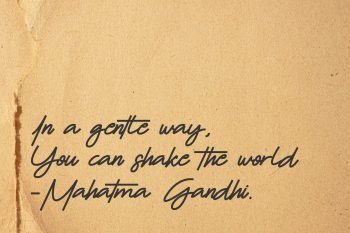 In a gentle way,
You can shake the world
-Mahatma Gandhi.